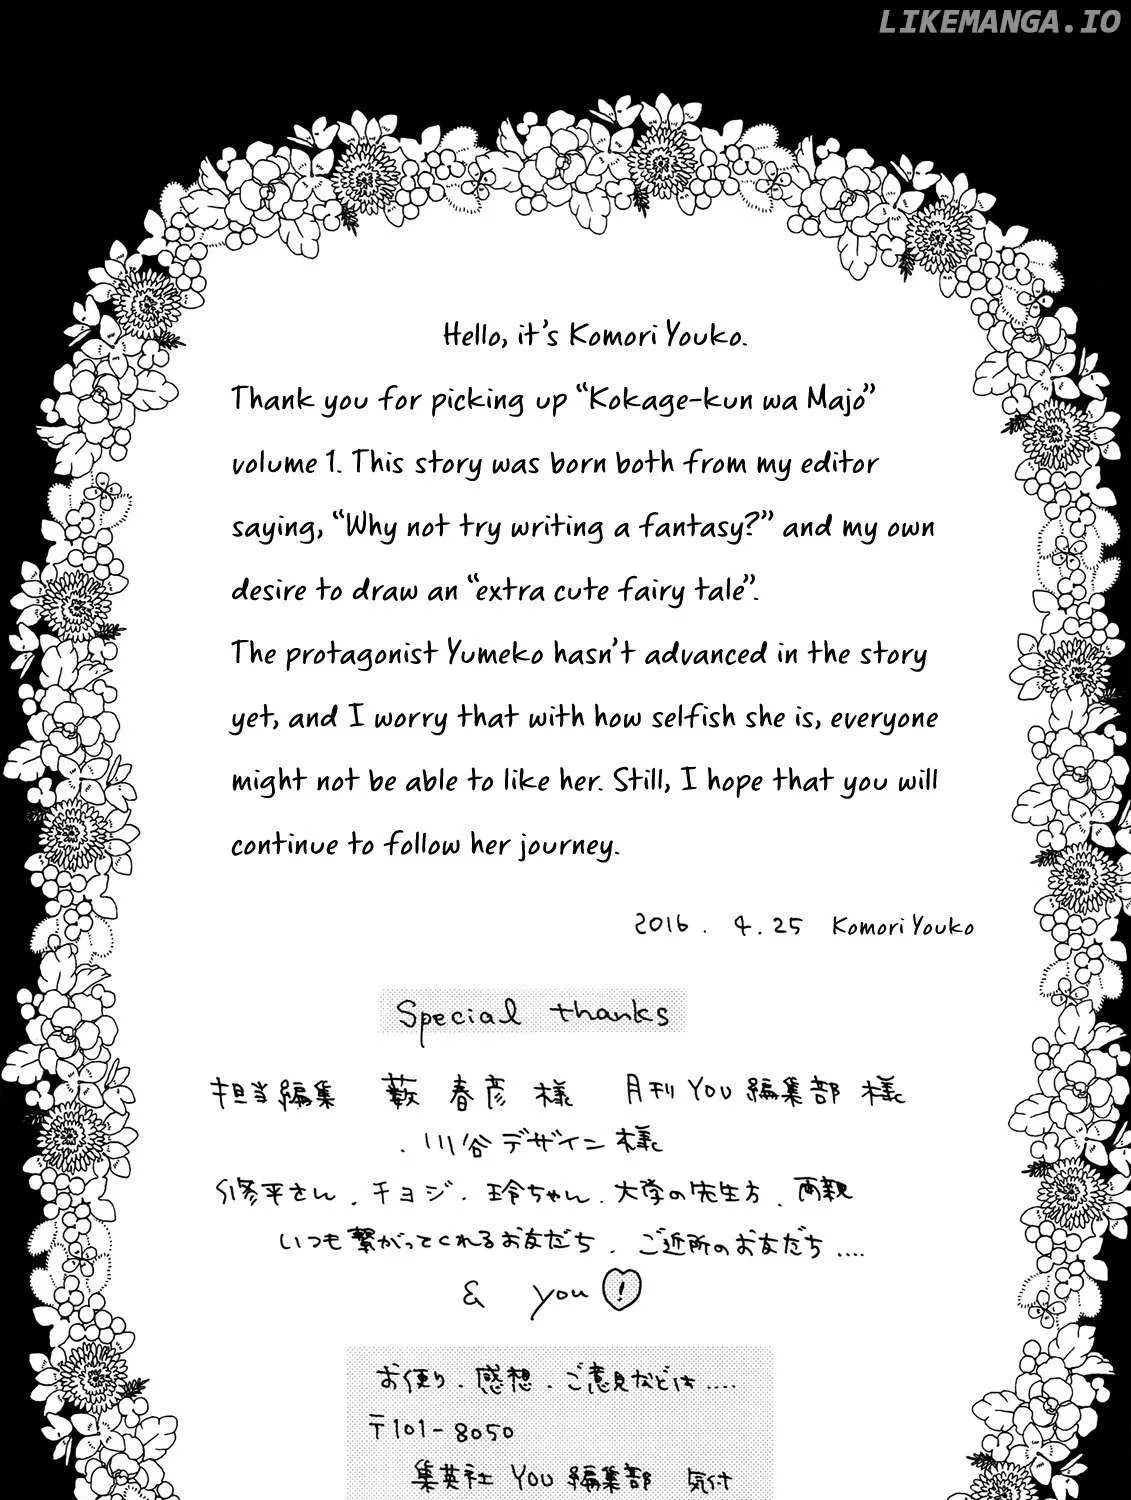 LIKEMANGA.IO
Hello, it's Komori Youko.
Thank you for picking up "Kokage-kun wa Majo"
volume 1. This story was born both from my editor
saying, "Why not try writing a fantasy?" and my own
desire to draw an "extra cute fairy tale".
The protagonist Yumeko hasn't advanced in the story
yet, and I worry that with how selfish she is, everyone
might not be able to like her. Still, I hope that you will
continue to follow her journey.
2016. 4.25 Komori Youko
Special thanks
担当編集 薮 春彦 様 月刊YOU編集部 様
. 川谷デザイン様
修平さん. チヨジ. 玲ちゃん. 大学の先生方. 両親
いつも繋がってくれるお友だち. ご近所のお友だち....
& you!
お便り. 感想. ご意見などは....
〒101-8050
集英社 YOU 編集部 気付